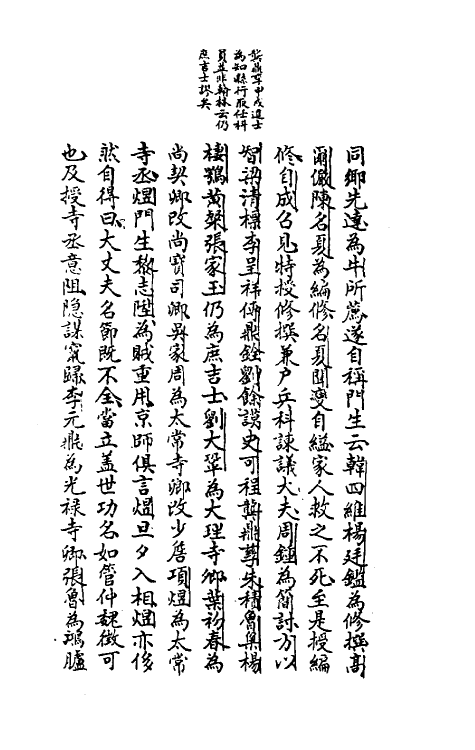 龔鼎孳甲戌進士
為知縣行取任科
員並非翰林云仍
庶吉士誤矣
同鄉先達為牛所薦遂自稱門生云韓四維楊廷鑑為修撰高
爾儼陳名夏為編修名夏聞變自縊家人救之不死至是授編
修自成召見特授修撰兼户兵科諫議大夫周鍾為簡討方以
智梁清標李呈祥何鼎銓劉餘謨史可程龔鼎孳朱積魯㮚楊
棲鶚黃燦張家玉仍為庶吉士劉大鞏為大理寺卿葉初春為
尚契卿改尚寶司卿吳家周為太常寺卿改少詹項煜為太常
寺丞煜門生黎志陞為賊重用京師俱言煜旦夕入相煜亦侈
然自得曰大丈夫名節既不全當立盖世功名如管仲魏徵可
也及授寺丞意阻隐謀竄歸李元鼎為光禄寺卿張魯為鴻臚